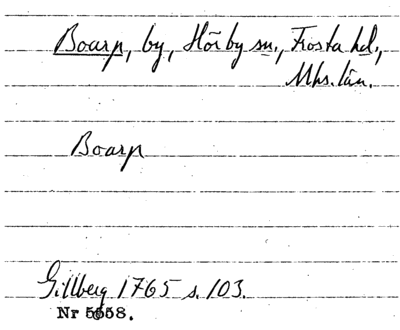 Boarp, by, Hörby sn., Frosta hd.,
Mhs. län.
Boarp
Gillberg 1765 s. 103.
Nr 5658.